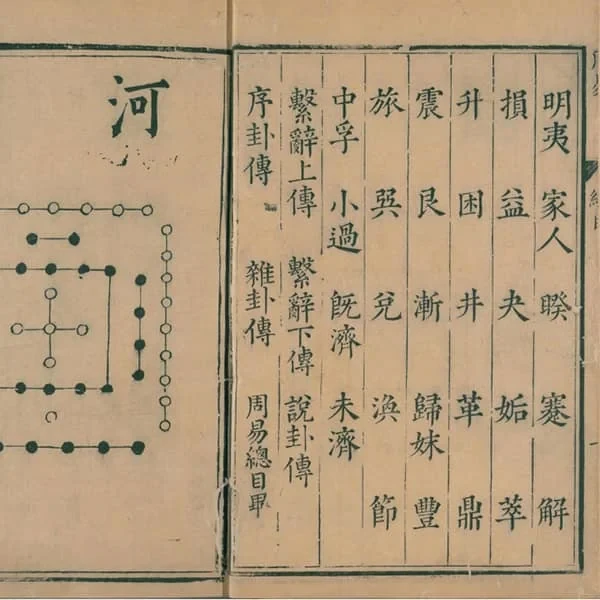 明夷 家人 睽 蹇 解
損 益 夬 姤 萃
升 困 井 革 鼎
震 艮 漸 歸妹 豐
旅 巽 兌 渙 節
中孚 小過 既濟 未濟
繫辭上傳 繫辭下傳 說卦傳
序卦傳 雜卦傳 周易總目畢
河